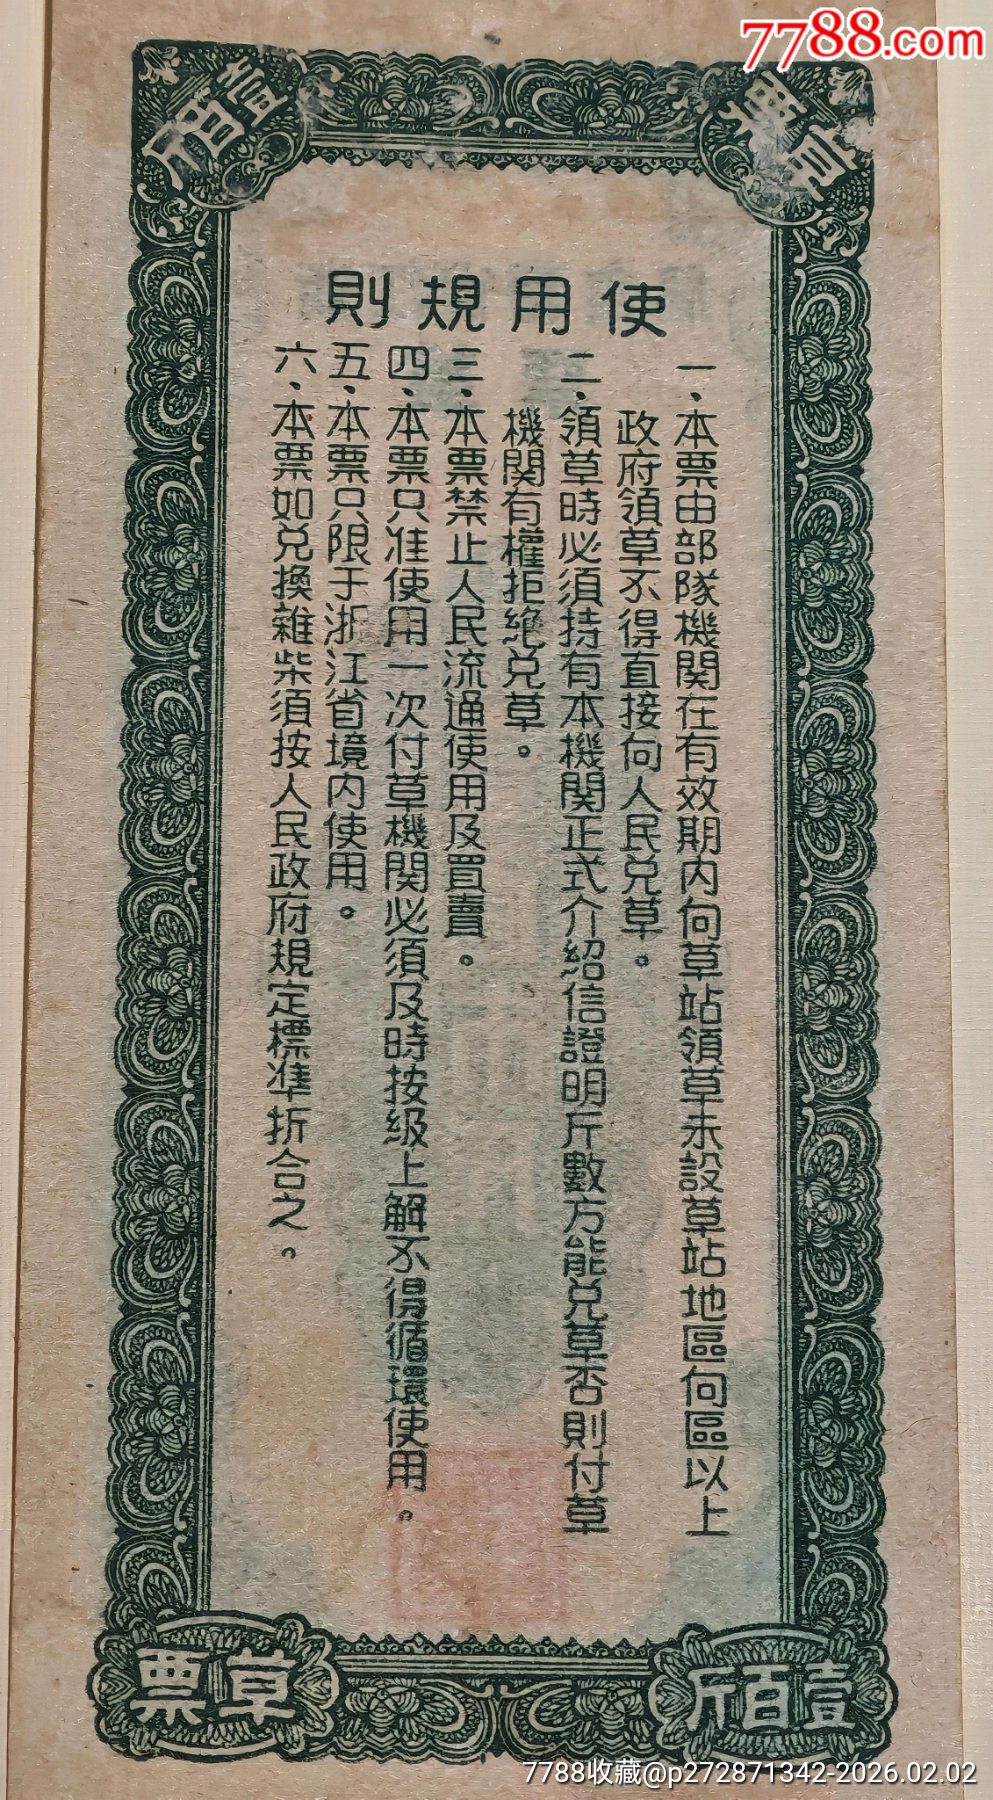 7788.com
壹百斤
草票
使用規則
一、本票由部隊機関在有效期内向草站領草未設草站地區向區以上
政府領草不得直接向人民兑草。
二、領草時必須持有本機関正式介紹信證明斤數方能兑草否則付草
機関有權拒絶兑草。
三、本票禁止人民流通使用及買賣。
四、本票只准使用一次付草機関必須及時按級上解不得循環使用。
五、本票只限于浙江省境内使用。
六、本票如兑換雜柴須按人民政府規定標準折合之。
壹百斤
草票
7788收藏@p272871342-2026.02.02